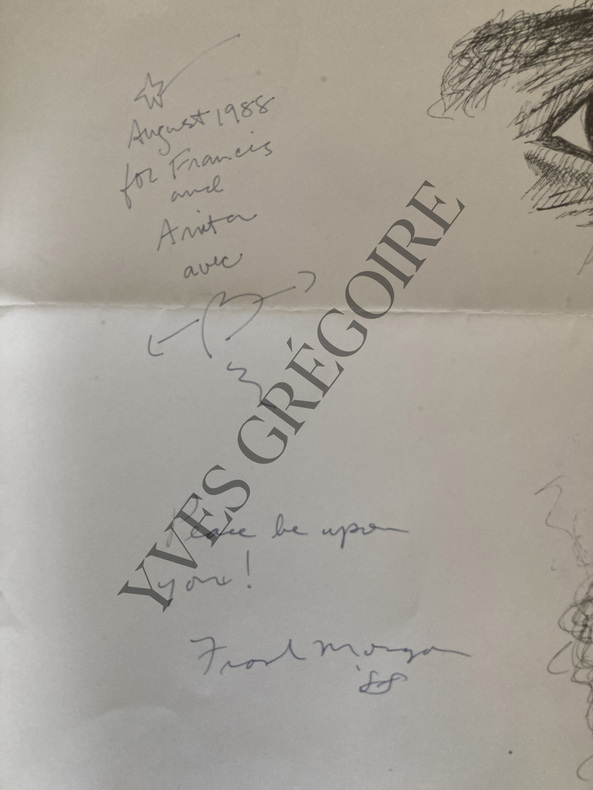 August 1988
for Francis
and
Anita
avec
Peace be upon
you!
Frank Morgan
'88
YVES GRÉGOIRE